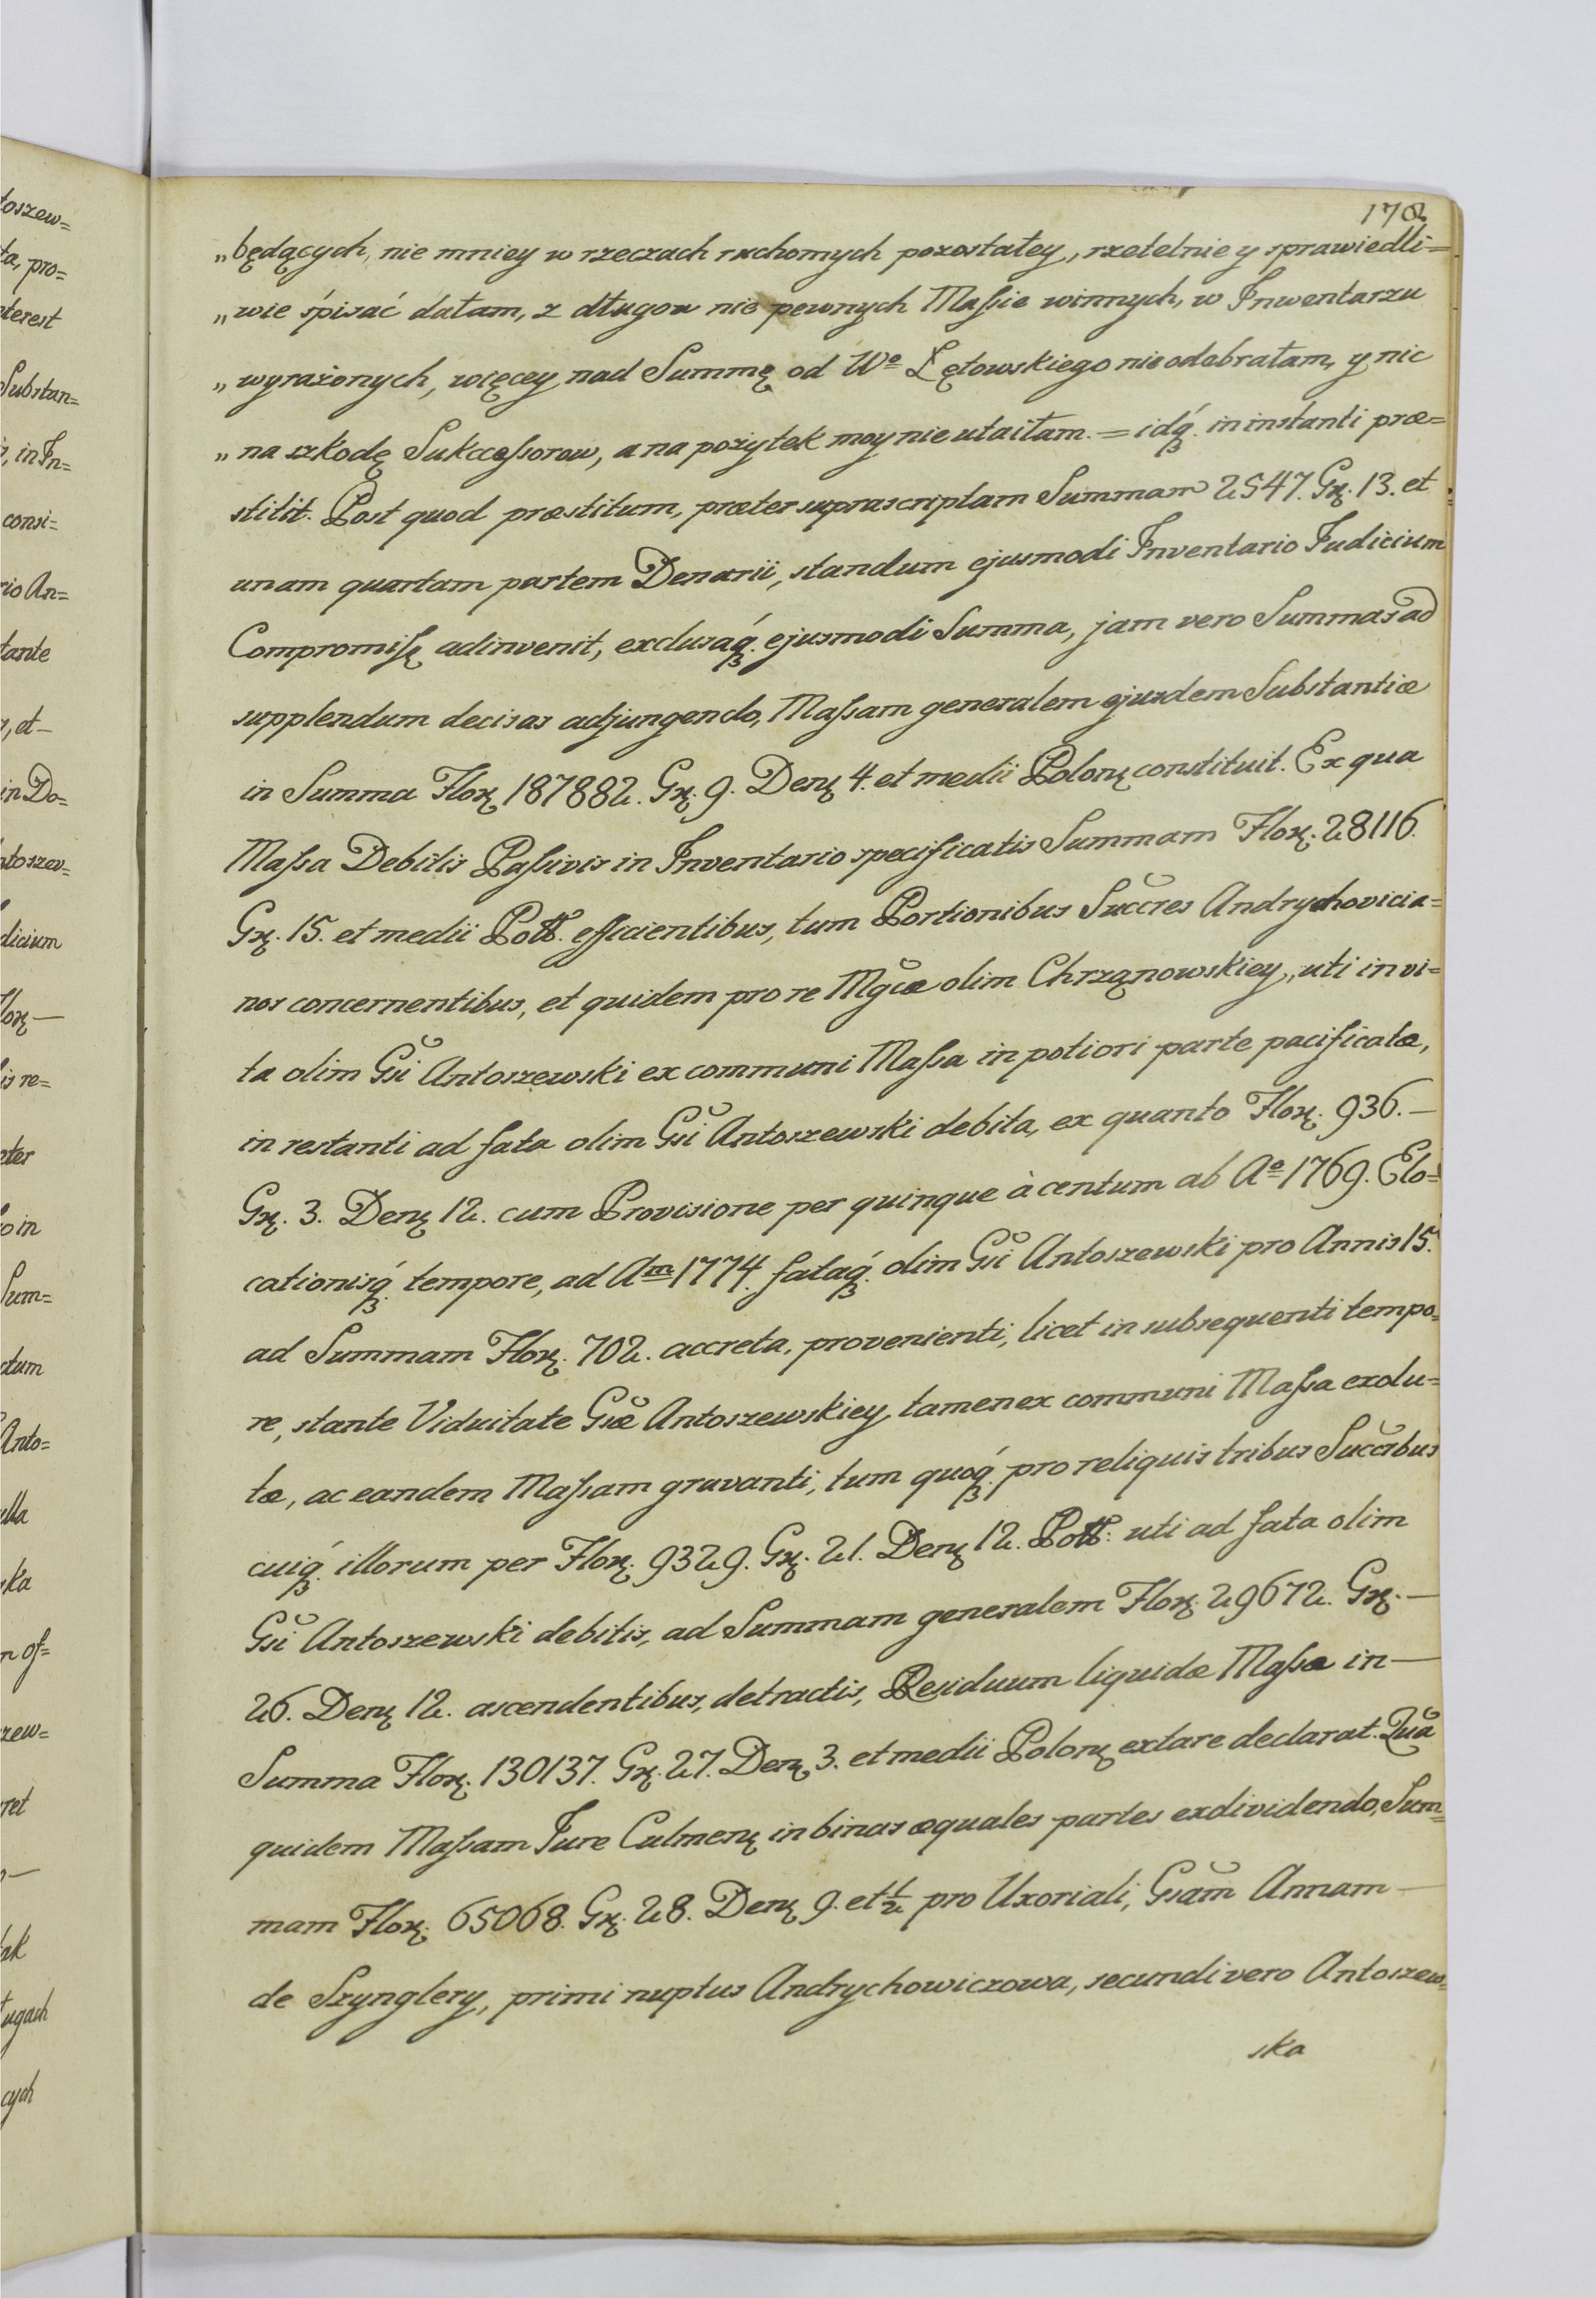 toszew=
ta, pro=
nterest
Substan=
, in In=
consi=
rio An=
tante
, et —
in Do=
ntoszew=
dicium
lorę —
is re=
eter
o in
Sum=
otum
Anto=
ella
ska
m of=
szew=
ret
—
ak
ugach
cych
178
„będących, nie mniey w rzeczach ruchomych pozostałey, rzetelnie y sprawiedli=
„wie śpisać dałam, z długow nie pewnych Maſsie winnych, w Inwentarzu
„wyrażonych, więcey nad Summę od Wo Łętowskiego nie odebrałam, y nic
„na szkodę Sukceſsorow, a na pożytek moy nie utaiłam. = idq́ꝫ. in instanti præ=
stitit. Post quod præstitum, præter suprascriptam Summam 2547. Grę. 13. et
unam quartam partem Denarii, standum ejusmodi Inventario Iudicium
Compromiſsę adinvenit, exclusaq́ꝫ. ejusmodi Summa, jam vero Summas ad
supplendum decisas adjungendo, Maſsam generalem ejusdem Substantiæ
in Summa Florę 187882. Grę. 9. Denę 4. et medii Polonę constituit. Ex qua
Maſsa Debitis Paſsivis in Inventario specificatis Summam Florę. 28116.
Grę. 15. et medii Poll. efficientibus, tum Portionibus Succres Andrychovicia=
nos concernentibus, et quidem pro re Mgcæ olim Chrząnowskiey, uti in vi=
ta olim Gsi Antoszewski ex communi Maſsa in potiori parte pacificatæ,
in restanti ad fata olim Gsi Antoszewski debita, ex quanto Florę. 936. —
Grę. 3. Denę 12. cum Provisione per quinque à centum ab Ao 1769. Elo=
cationisq́ꝫ. tempore, ad Am 1774. fataq́ꝫ. olim Gsi Antoszewski pro Annis 15.
ad Summam Florę. 702. accreta, provenienti, licet in subsequenti tempo=
re, stante Viduitate Gsæ Antoszewskiey, tamen ex communi Maſsa exolu=
tæ, ac eandem Maſsam gravanti, tum quoq́ꝫ. pro reliquis tribus Succribus
cuiq́ꝫ. illorum per Florę. 9329. Grę. 21. Denę 12. Poll: uti ad fata olim
Gsi Antoszewski debitis, ad Summam generalem Florę. 29672. Grę. —
26. Denę 12. ascendentibus, detractis, Residuum liquidæ Maſsæ in —
Summa Florę. 130137. Grę. 27. Denę 3. et medii Polonę extare declarat. Qua
quidem Maſsam Iure Culmenę in binas æquales partes exdividendo, Sum=
mam Florę. 65068. Grę. 28. Denę 9. et ½ pro Uxoriali, Gsam Annam —
de Szynglery, primi nuptus Andrychowiczowa, secundi vero Antoszew=
ska